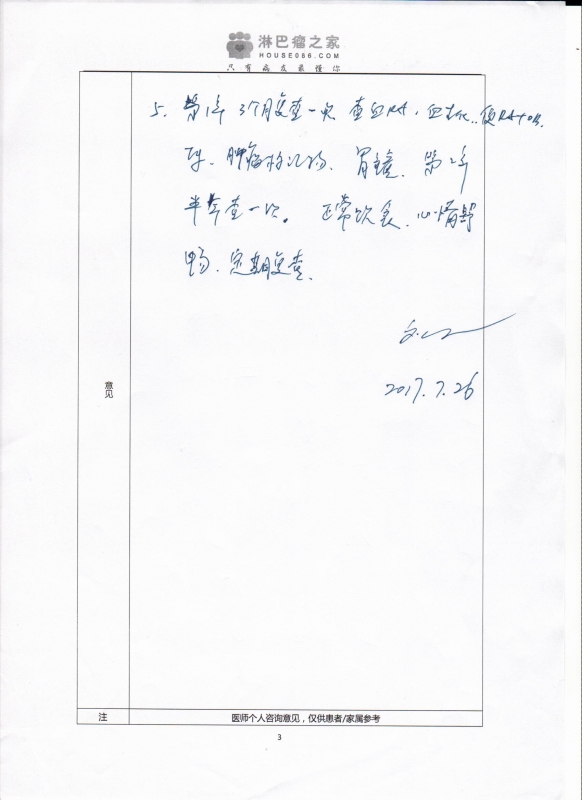 淋巴瘤之家
HOUSE086.COM
只有病友最懂你
5. 第1年 3个月复查一次 查血Rt、血生化、便Rt+OB、
胃镜、第2年
半年查一次。正常饮食、心情舒
畅、定期复查、
2017.7.26
意见
注
医师个人咨询意见，仅供患者/家属参考
3